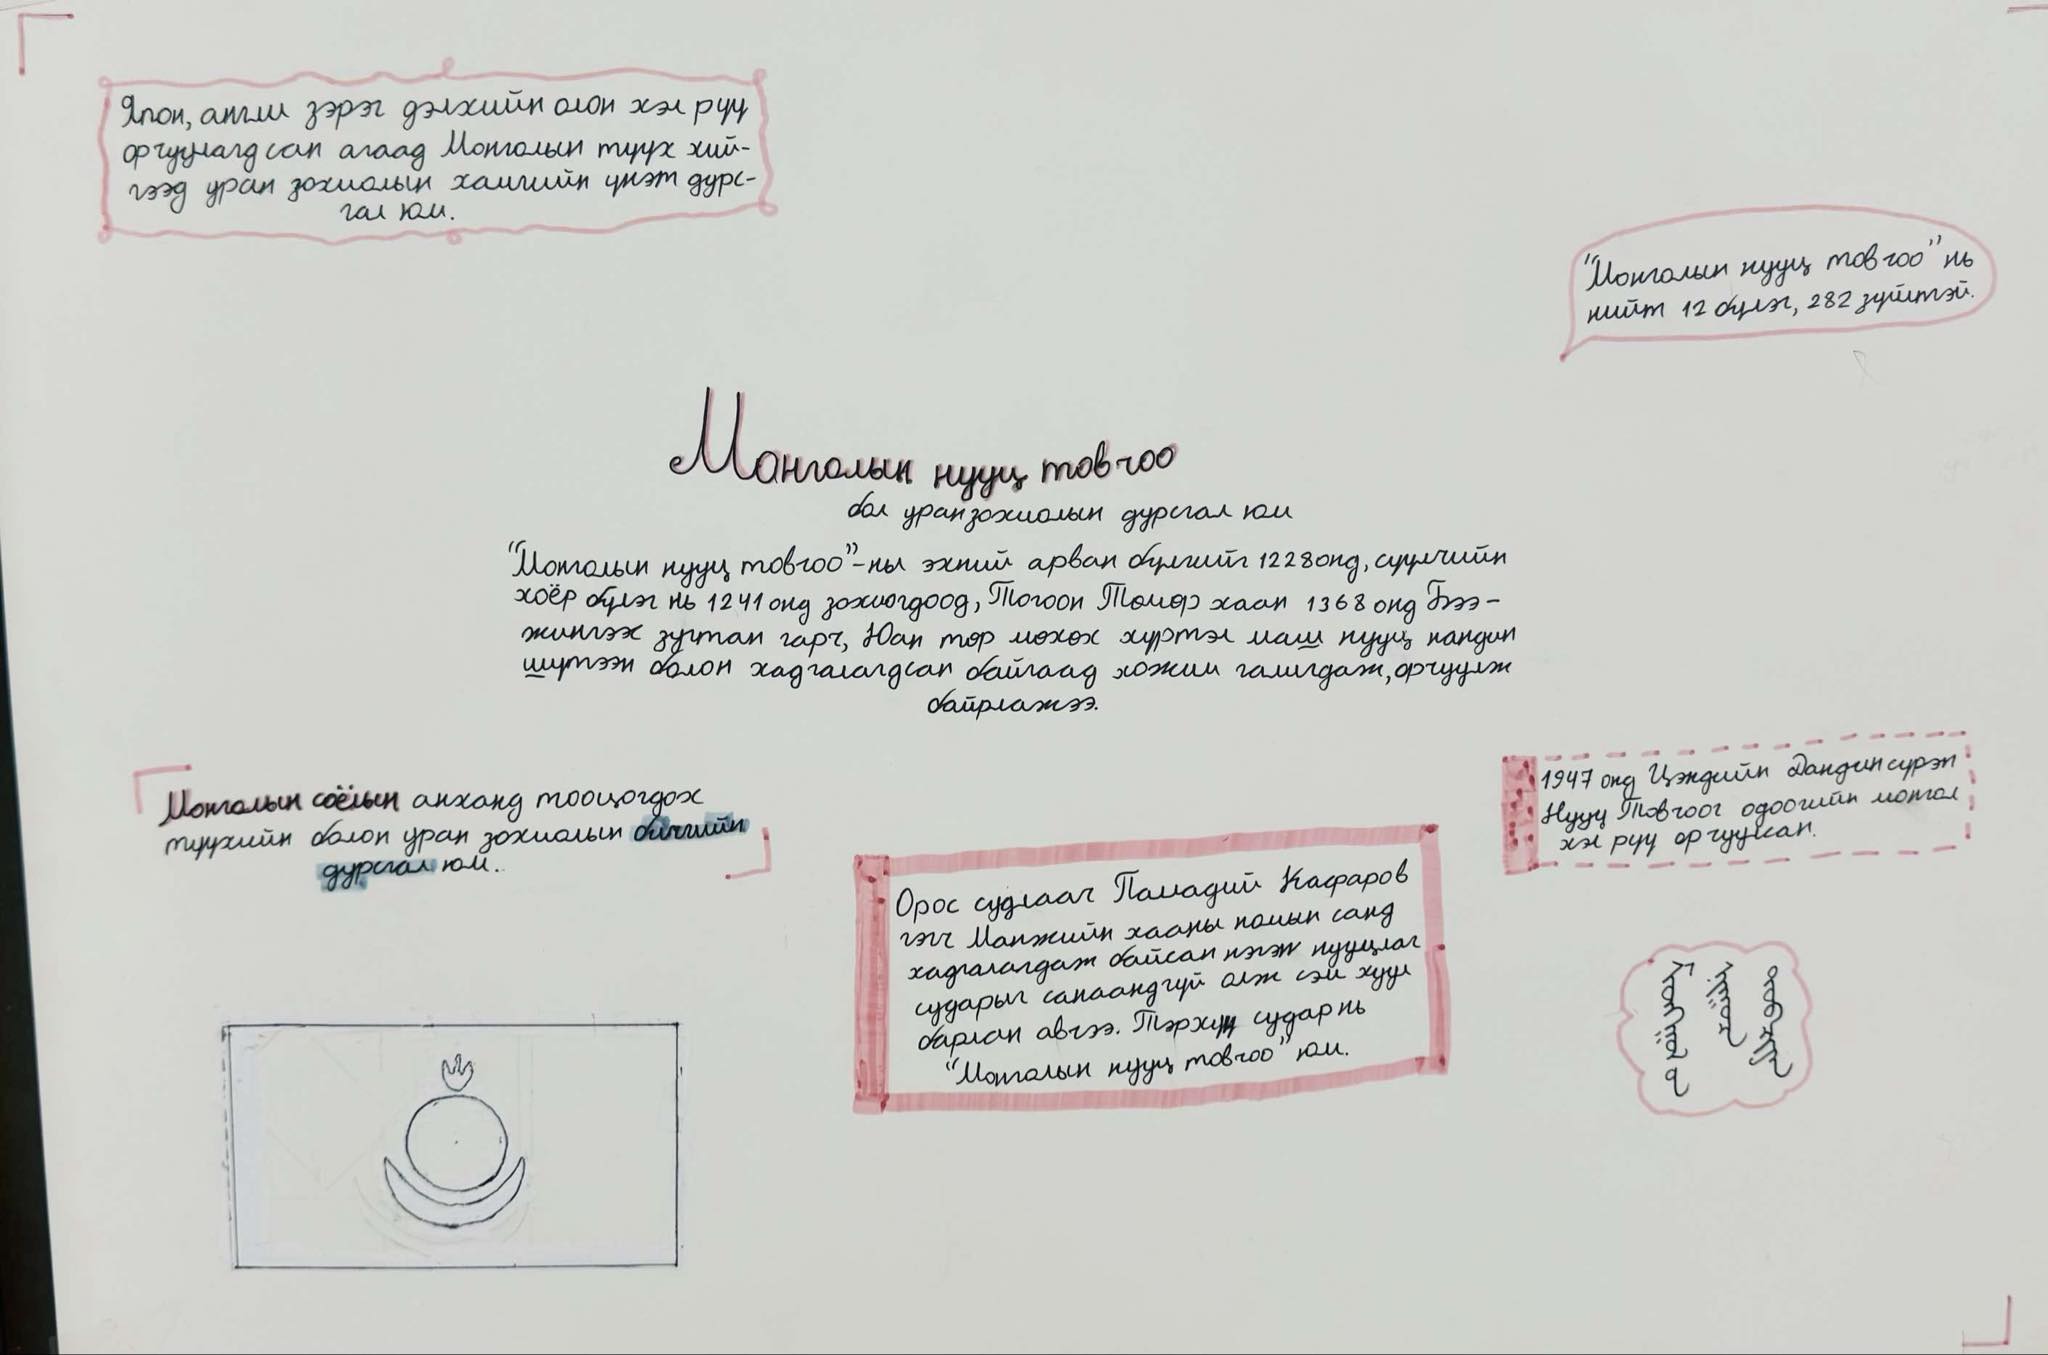 Япон, англи зэрэг дэлхийн олон хэл рүү
орчуулагдсан агаад Монголын түүх хий-
гээд уран зохиолын хамгийн үнэт дурс-
гал юм.
"Монголын нууц товчоо" нь
нийт 12 бүлэг, 282 зүйлтэй.
Монголын нууц товчоо
бол уран зохиолын дурсгал юм
"Монголын нууц товчоо"-ны эхний арван бүлгийг 1228 онд, сүүлчийн
хоёр бүлэг нь 1241 онд зохиогдоод, Тогоон Төмөр хаан 1368 онд Бээ-
жингээх зугтан гарч, Юан төр мөхөх хүртэл маш нууц нандин
шүтээн болон хадгалагдсан байгаад хожим галигдаж, орчуулж
байрлажээ.
Монголын соёлын анханд тооцогдох
түүхийн болон уран зохиолын бичгийн
дурсгал юм..
1947 онд Цэндийн Дамдинсүрэн
Нууц Товчоог одоогийн монгол
хэл рүү орчуулсан.
Орос судлаач Палладий Кафаров
гэгч Манжийн хааны номын санд
хадгалагдаж байсан нэгэн нууцлаг
сударыг санаандгүй олж сэм хуул
барлан авчээ. Тэрхүү судар нь
"Монголын нууц товчоо" юм.